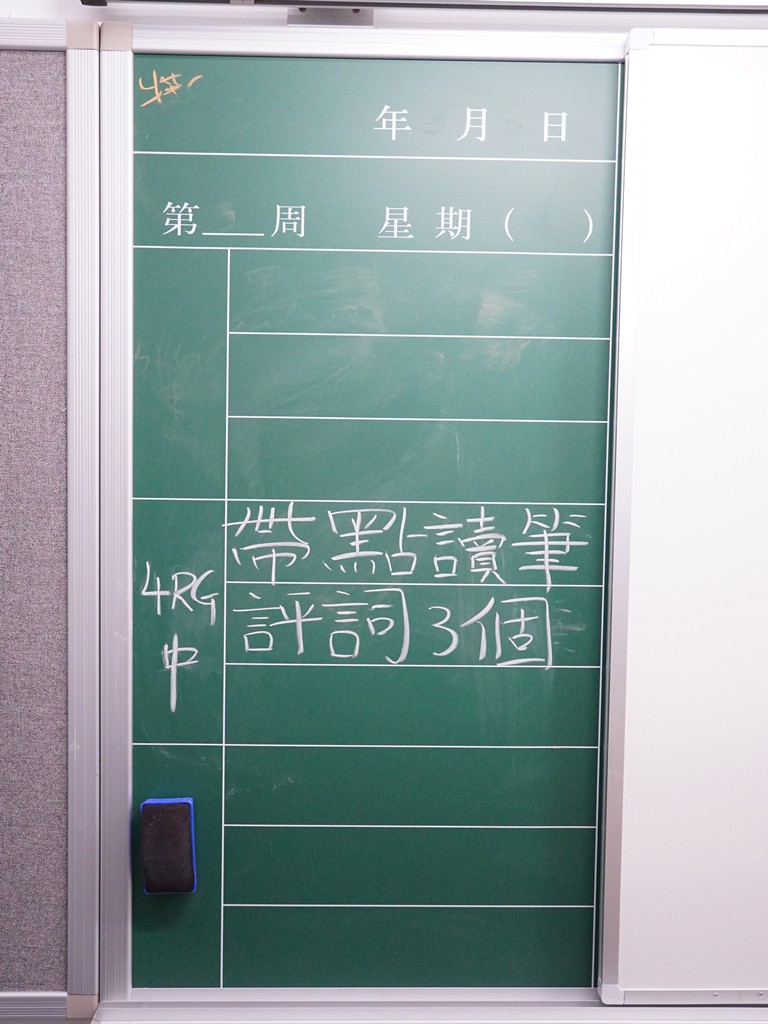 年 月 日
第___周 星期( )
帶點讀筆
4RG
中
評詞3個